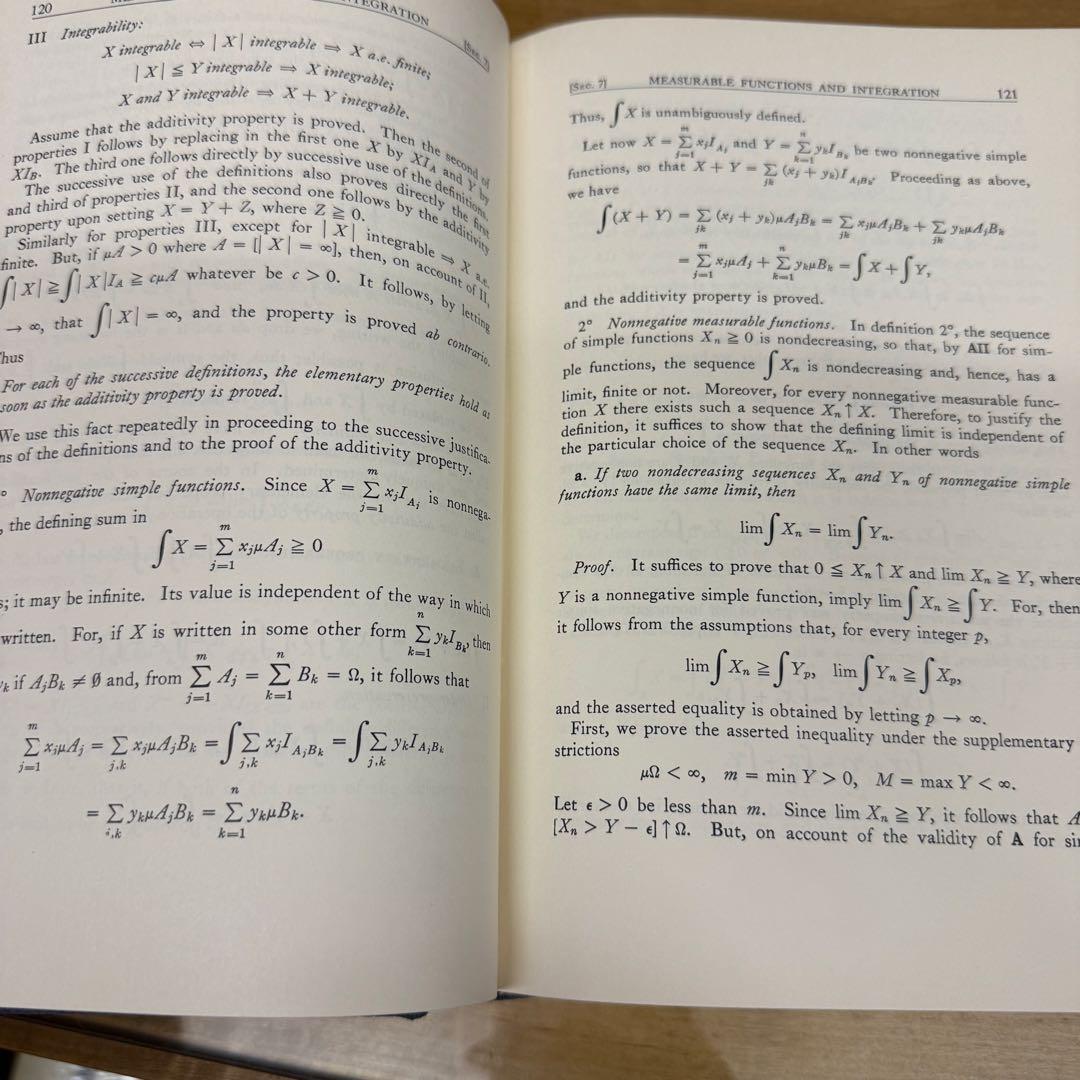 120
INTEGRATION
[Sec. 7]
III Integrability:
X integrable ⇔ | X | integrable ⇒ X a.e. finite;
| X | ≦ Y integrable ⇒ X integrable;
X and Y integrable ⇒ X + Y integrable.
Assume that the additivity property is proved. Then the second of
properties I follows by replacing in the first one X by XI_A and Y by
XI_B. The third one follows directly by successive use of the definitions.
The successive use of the definitions also proves directly the first
and third of properties II, and the second one follows by the additivity
property upon setting X = Y + Z, where Z ≧ 0.
Similarly for properties III, except for | X | integrable ⇒ X a.e.
finite. But, if μA > 0 where A = [| X | = ∞], then, on account of II,
∫| X | ≧ ∫| X |I_A ≧ cμA whatever be c > 0. It follows, by letting
→ ∞, that ∫| X | = ∞, and the property is proved ab contrario.
hus
For each of the successive definitions, the elementary properties hold as
soon as the additivity property is proved.
We use this fact repeatedly in proceeding to the successive justifica-
ns of the definitions and to the proof of the additivity property.
° Nonnegative simple functions. Since X = ∑_{j=1}^{m} x_j I_{A_j} is nonnega-
, the defining sum in
∫X = ∑_{j=1}^{m} x_j μA_j ≧ 0
s; it may be infinite. Its value is independent of the way in which
written. For, if X is written in some other form ∑_{k=1}^{n} y_k I_{B_k}, then
y_k if A_jB_k ≠ Ø and, from ∑_{j=1}^{m} A_j = ∑_{k=1}^{n} B_k = Ω, it follows that
∑_{j=1}^{m} x_j μA_j = ∑_{j,k} x_j μA_jB_k = ∫∑_{j,k} x_j I_{A_jB_k} = ∫∑_{j,k} y_k I_{A_jB_k}
= ∑_{j,k} y_k μA_jB_k = ∑_{k=1}^{n} y_k μB_k.
[Sec. 7] MEASURABLE FUNCTIONS AND INTEGRATION 121
Thus, ∫X is unambiguously defined.
Let now X = ∑_{j=1}^{m} x_j I_{A_j} and Y = ∑_{k=1}^{n} y_k I_{B_k} be two nonnegative simple
functions, so that X + Y = ∑_{jk} (x_j + y_k)I_{A_jB_k}. Proceeding as above,
we have
∫(X + Y) = ∑_{jk} (x_j + y_k)μA_jB_k = ∑_{jk} x_j μA_jB_k + ∑_{jk} y_k μA_jB_k
= ∑_{j=1}^{m} x_j μA_j + ∑_{k=1}^{n} y_k μB_k = ∫X + ∫Y,
and the additivity property is proved.
2° Nonnegative measurable functions. In definition 2°, the sequence
of simple functions X_n ≧ 0 is nondecreasing, so that, by AII for sim-
ple functions, the sequence ∫X_n is nondecreasing and, hence, has a
limit, finite or not. Moreover, for every nonnegative measurable func-
tion X there exists such a sequence X_n ↑ X. Therefore, to justify the
definition, it suffices to show that the defining limit is independent of
the particular choice of the sequence X_n. In other words
a. If two nondecreasing sequences X_n and Y_n of nonnegative simple
functions have the same limit, then
lim ∫X_n = lim ∫Y_n.
Proof. It suffices to prove that 0 ≦ X_n ↑ X and lim X_n ≧ Y, where
Y is a nonnegative simple function, imply lim ∫X_n ≧ ∫Y. For, then
it follows from the assumptions that, for every integer p,
lim ∫X_n ≧ ∫Y_p, lim ∫Y_n ≧ ∫X_p,
and the asserted equality is obtained by letting p → ∞.
First, we prove the asserted inequality under the supplementary
strictions
μΩ < ∞, m = min Y > 0, M = max Y < ∞.
Let ϵ > 0 be less than m. Since lim X_n ≧ Y, it follows that A
[X_n > Y − ϵ] ↑ Ω. But, on account of the validity of A for sim